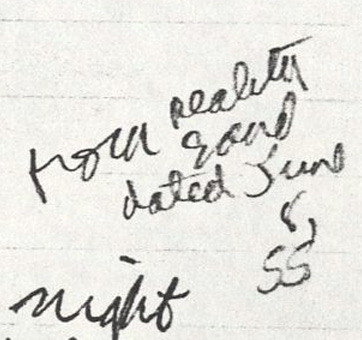 from reality
good
dated June
8,
55
night